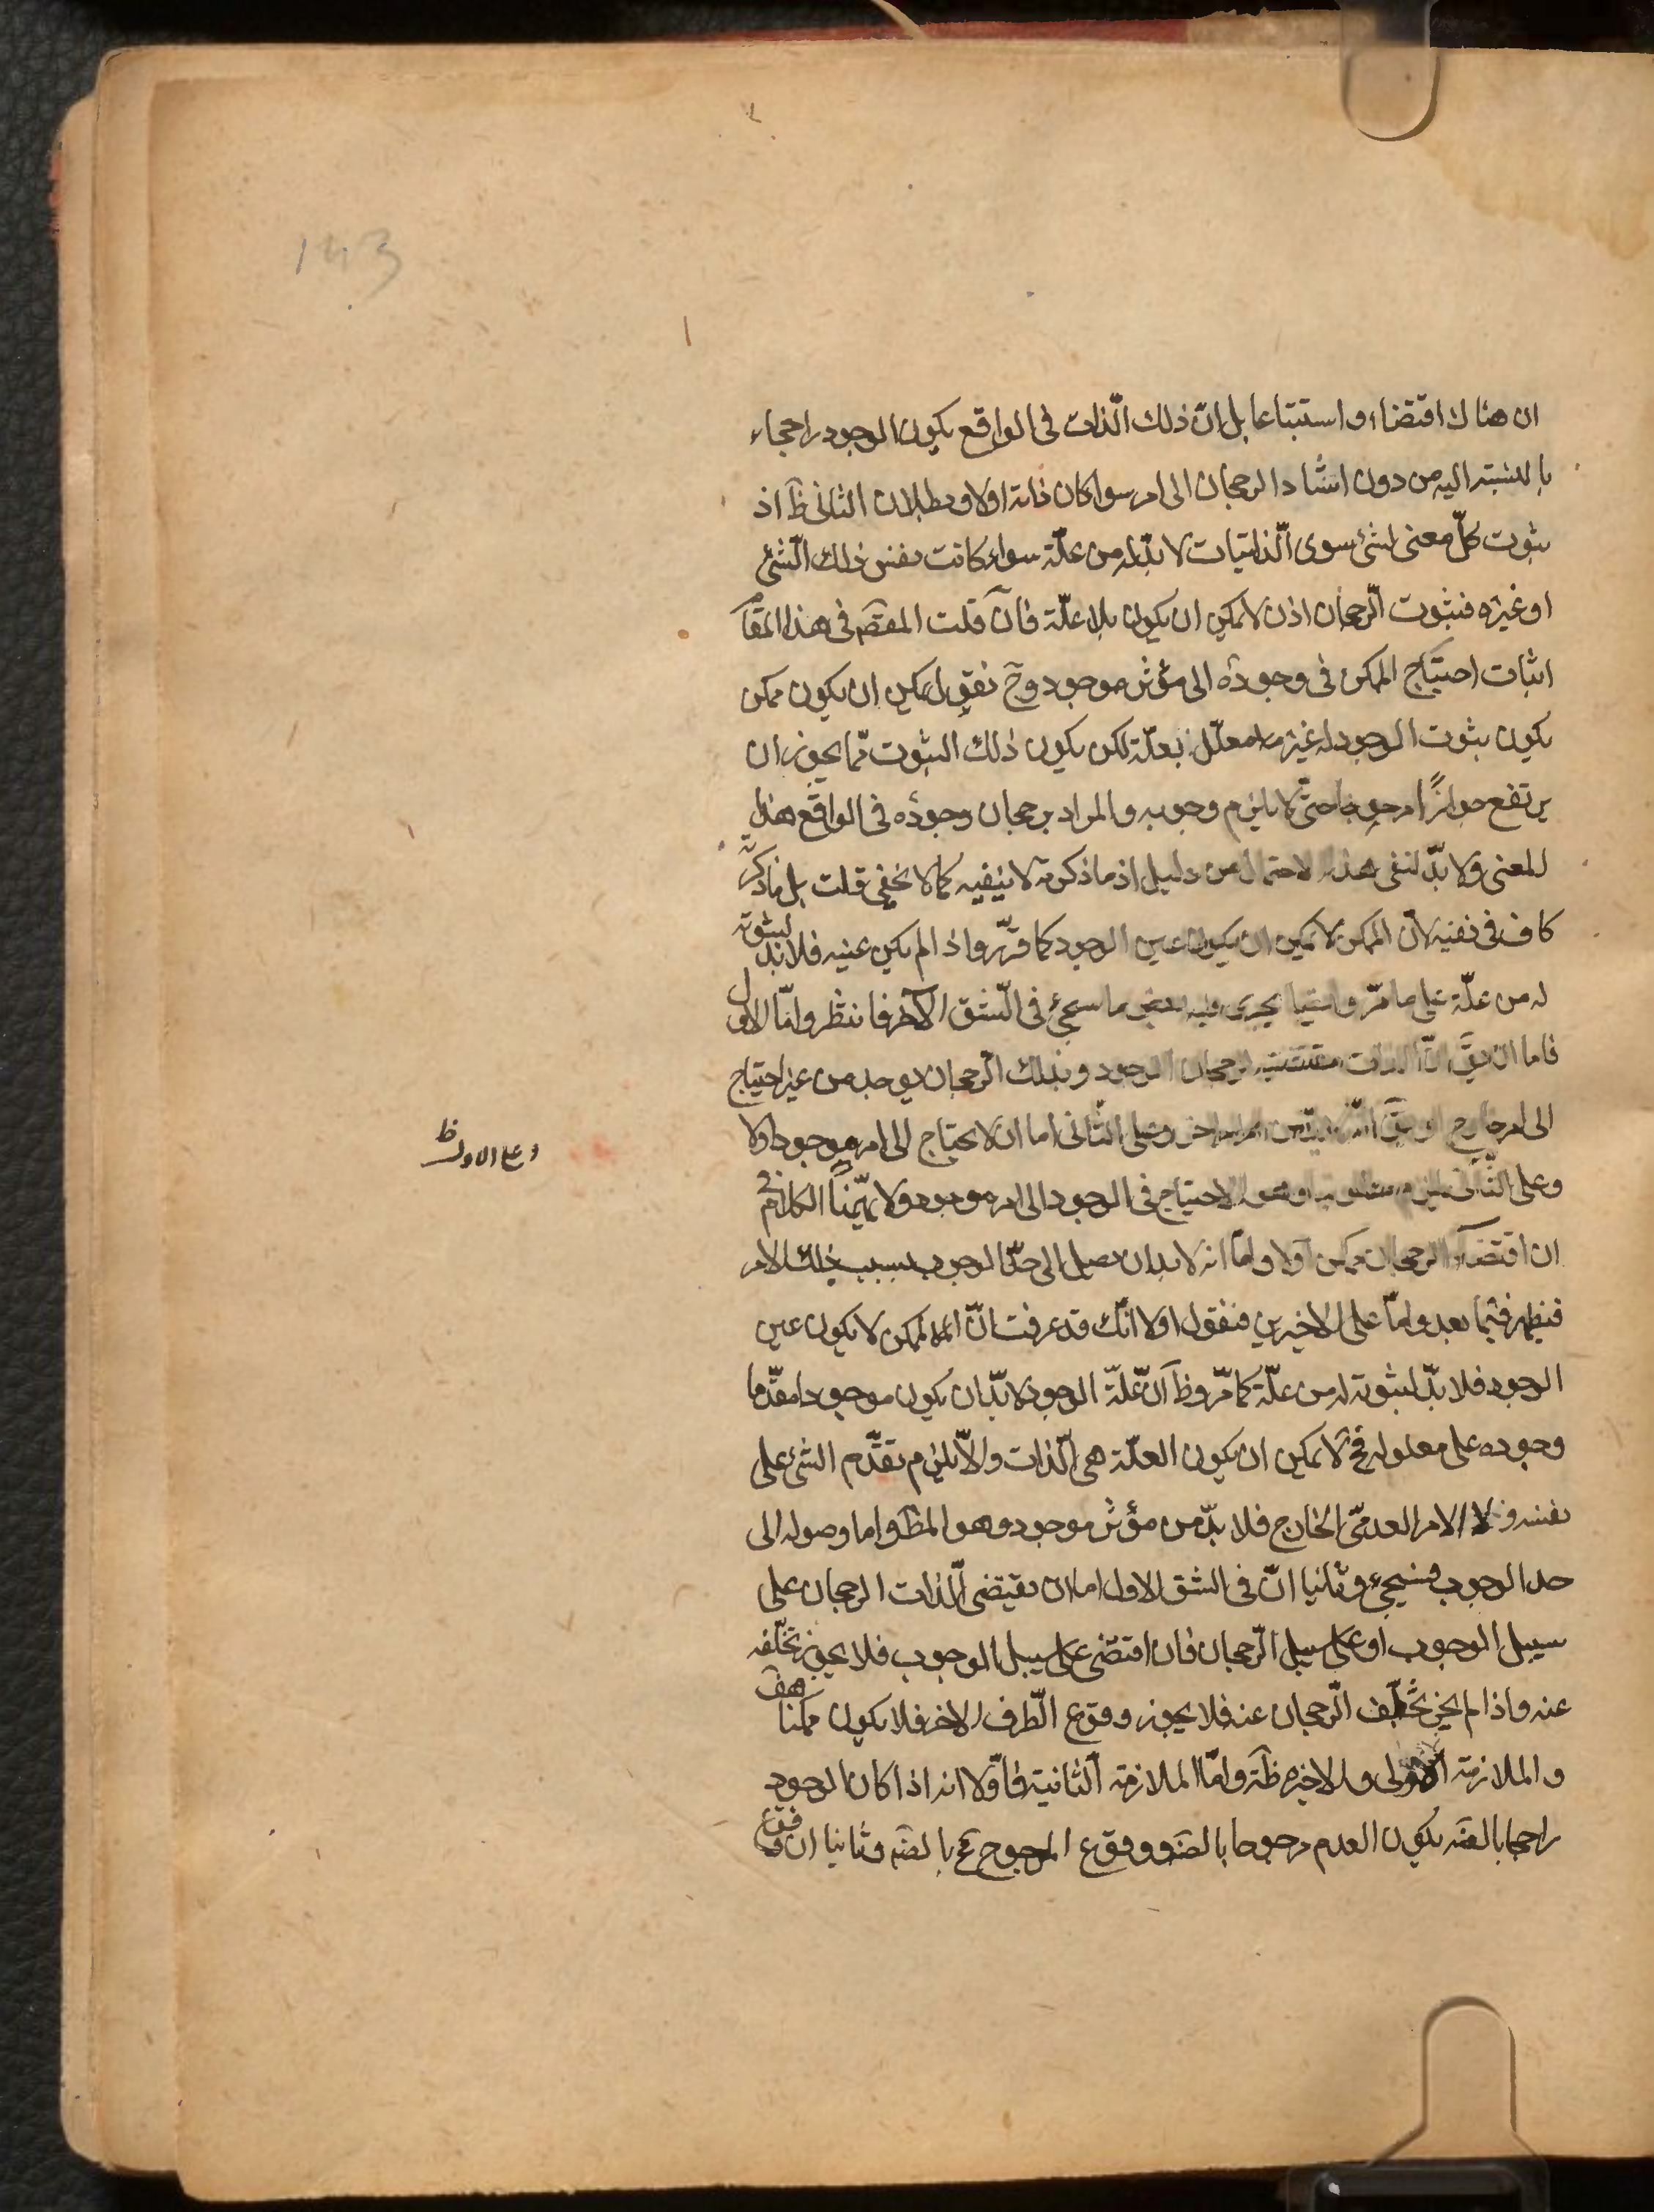 143
ان هناك اقتضاء واستتباعا بل انّ ذلك الّذات فى الواقع يكون الوجود راجحا
بالنسبة اليه من دون استناد الرجحان الى امر سواء كان ذاته اولا وبطلان الثانى ظ اذ
ثبوت كلّ معنى لشئ سوى الّذاتيات لا بدّ له من علّة سواء كانت نفس ذلك الّشئ
او غيره فثبوت الّرجحان اذن لا يمكن ان يكون بلا علّة فان قلت المقصَ فى هذا المقا
اثبات احتياج الممكن فى وجوده الى مؤثر موجود وح نقول يمكن ان يكون ممكن
يكون ثبوت الوجود له غير معلّل بعلّة لكن يكون ذلك الثبوت ممّا يجوز ان
يرتفع جوازًا مرجوحا حتّى لا يلزم وجوبه والمراد برجحان وجوده فى الواقع هذا
المعنى ولا بدّ لنفى هذا الاحتمال من دليل اذ ما ذكرته لا ينفيه كما لا يخفى قلت بل ما ذكرته
كاف فى نفيه لأن الممكن لا يمكن ان يكون عين الوجود كما قرّر واذا لم يكن عينه فلا بدّ لثبوته
له من علّة على ما مرّ وايضا يجرى فيه بعض ما سيجئ فى الّشق الآخر فانتظر وامّا الاول
فاما ان يقَ انّ الذات مقتضية لرجحان الوجود وبذلك الّرجحان يوجد من غير احتياج
الى امر خارج او يقَ انّه لا بدّ من امر اخر وعلى الثّانى اما ان لا يحتاج الى امر موجود اولا
وعلى الثّانى يلزم مطلوبنا وهو الاحتياج فى الوجود الى امر موجود ولا يهمّنا الكلام فى
ان اقتضاء الرجحان ممكن اولا وامّا انه لا بد ان يصل الى حدّ الوجوب بسبب ذلك الامر
فيظهر فيما بعد وامّا على الاخيرين فنقول اولا انّك قد عرفت انّ الممكن لا يكون عين
الوجود فلا بدّ لثبوته له من علّة كما مرّ وظَ انّ علّة الوجود لا بدّ ان يكون موجودا مقدّما
وجوده على معلوله فح لا يمكن ان يكون العلّة هى الّذات والاّ يلزم تقدّم الشئ على
نفسه ولا الامر العدمّى الخارج فلا بدّ من مؤثر موجود وهو المطَ واما وصوله الى
حد الوجوب فسيجئ وثانيا انّ فى الشق الاول اما ان يقتضى الّذات الرجحان على
سبيل الوجوب او على سبيل الّرجحان فان اقتضى على سبيل الوجوب فلا يجوز تخلّفه
عنه واذا لم يجز تخلّف الّرجحان عنه فلا يجوز وقوع الّطرف الاخر فلا يكون ممكنا هف
والملازمة الاولى والاخيره ظَة وامّا الملازمة الّثانية فاوّلا انه اذا كان الوجود
راجحا بالضَه يكون العدم مرجوحا بالضَه ووقوع المرجوح مح بالضَه وثانيا ان وقوع
وعلى الاول ظ